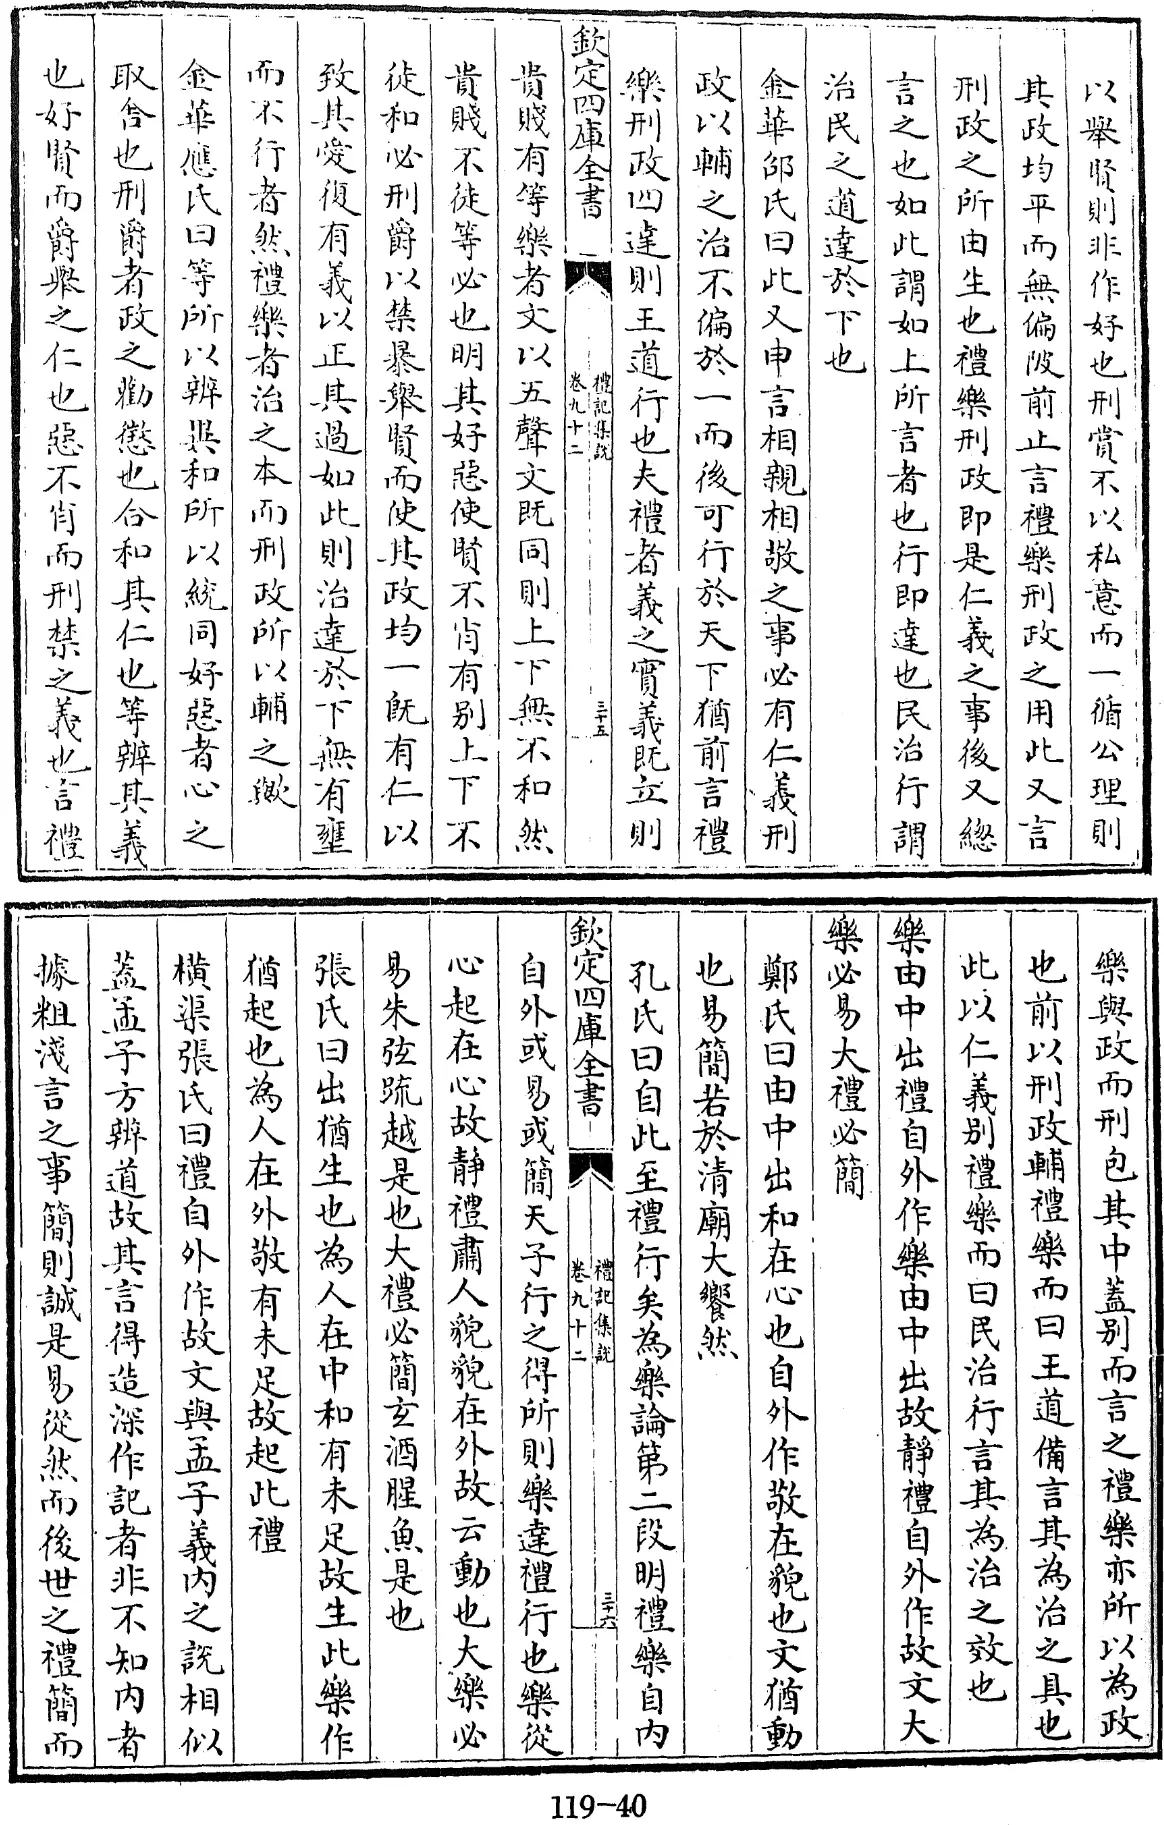 以舉賢則非作好也刑賞不以私意而一循公理則
其政均平而無偏陂前止言禮樂刑政之用此又言
刑政之所由生也禮樂刑政即是仁義之事後又總
言之也如此謂如上所言者也行即達也民治行謂
治民之道達於下也
金華邵氏曰此又申言相親相敬之事必有仁義刑
政以輔之治不偏於一而後可行於天下猶前言禮
樂刑政四達則王道行也夫禮者義之實義既立則
欽定四庫全書
禮記集說
卷九十二
三十五
貴賤有等樂者文以五聲文既同則上下無不和然
貴賤不徒等必也明其好惡使賢不肖有别上下不
徒和必刑爵以禁暴舉賢而使其政均一既有仁以
致其愛復有義以正其過如此則治達於下無有壅
而不行者然禮樂者治之本而刑政所以輔之歟
金華應氏曰等所以辨異和所以統同好惡者心之
取舍也刑爵者政之勸懲也合和其仁也等辨其義
也好賢而爵舉之仁也惡不肖而刑禁之義也言禮
樂與政而刑包其中蓋别而言之禮樂亦所以為政
也前以刑政輔禮樂而曰王道備言其為治之具也
此以仁義别禮樂而曰民治行言其為治之效也
樂由中出禮自外作樂由中出故靜禮自外作故文大
樂必易大禮必簡
鄭氏曰由中出和在心也自外作敬在貌也文猶動
也易簡若於清廟大饗然
孔氏曰自此至禮行矣為樂論第二段明禮樂自內
欽定四庫全書
禮記集說
卷九十二
三十六
自外或易或簡天子行之得所則樂達禮行也樂從
心起在心故靜禮肅人貌貌在外故云動也大樂必
易朱弦疏越是也大禮必簡玄酒腥魚是也
張氏曰出猶生也為人在中和有未足故生此樂作
猶起也為人在外敬有未足故起此禮
橫渠張氏曰禮自外作故文與孟子義內之說相似
蓋孟子方辨道故其言得造深作記者非不知內者
據粗淺言之事簡則誠是易從然而後世之禮簡而
119-40